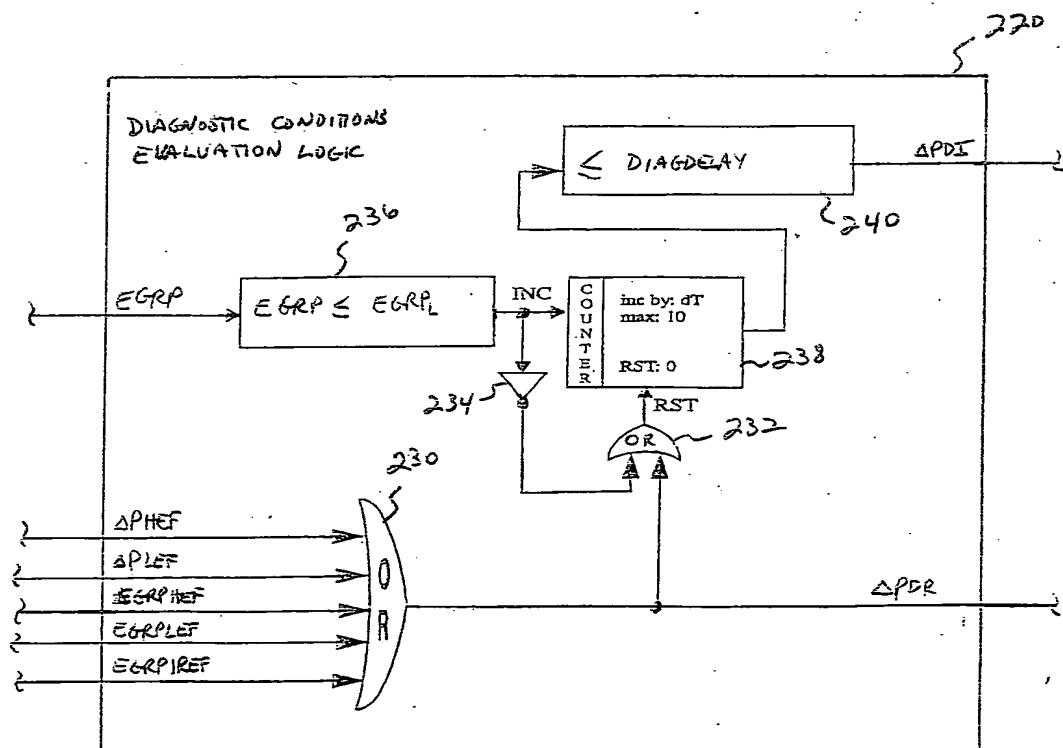 220
DIAGNOSTIC CONDITIONS
EVALUATION LOGIC
≤ DIAGDELAY
ΔPDI
240
236
EGRP
EGRP ≤ EGRPL
INC
COUNTER
inc by: dT
max: 10
RST: 0
238
234
RST
OR
232
230
ΔPHEF
ΔPLEF
EGRPHEF
EGRPLEF
EGRPIREF
OR
ΔPDR